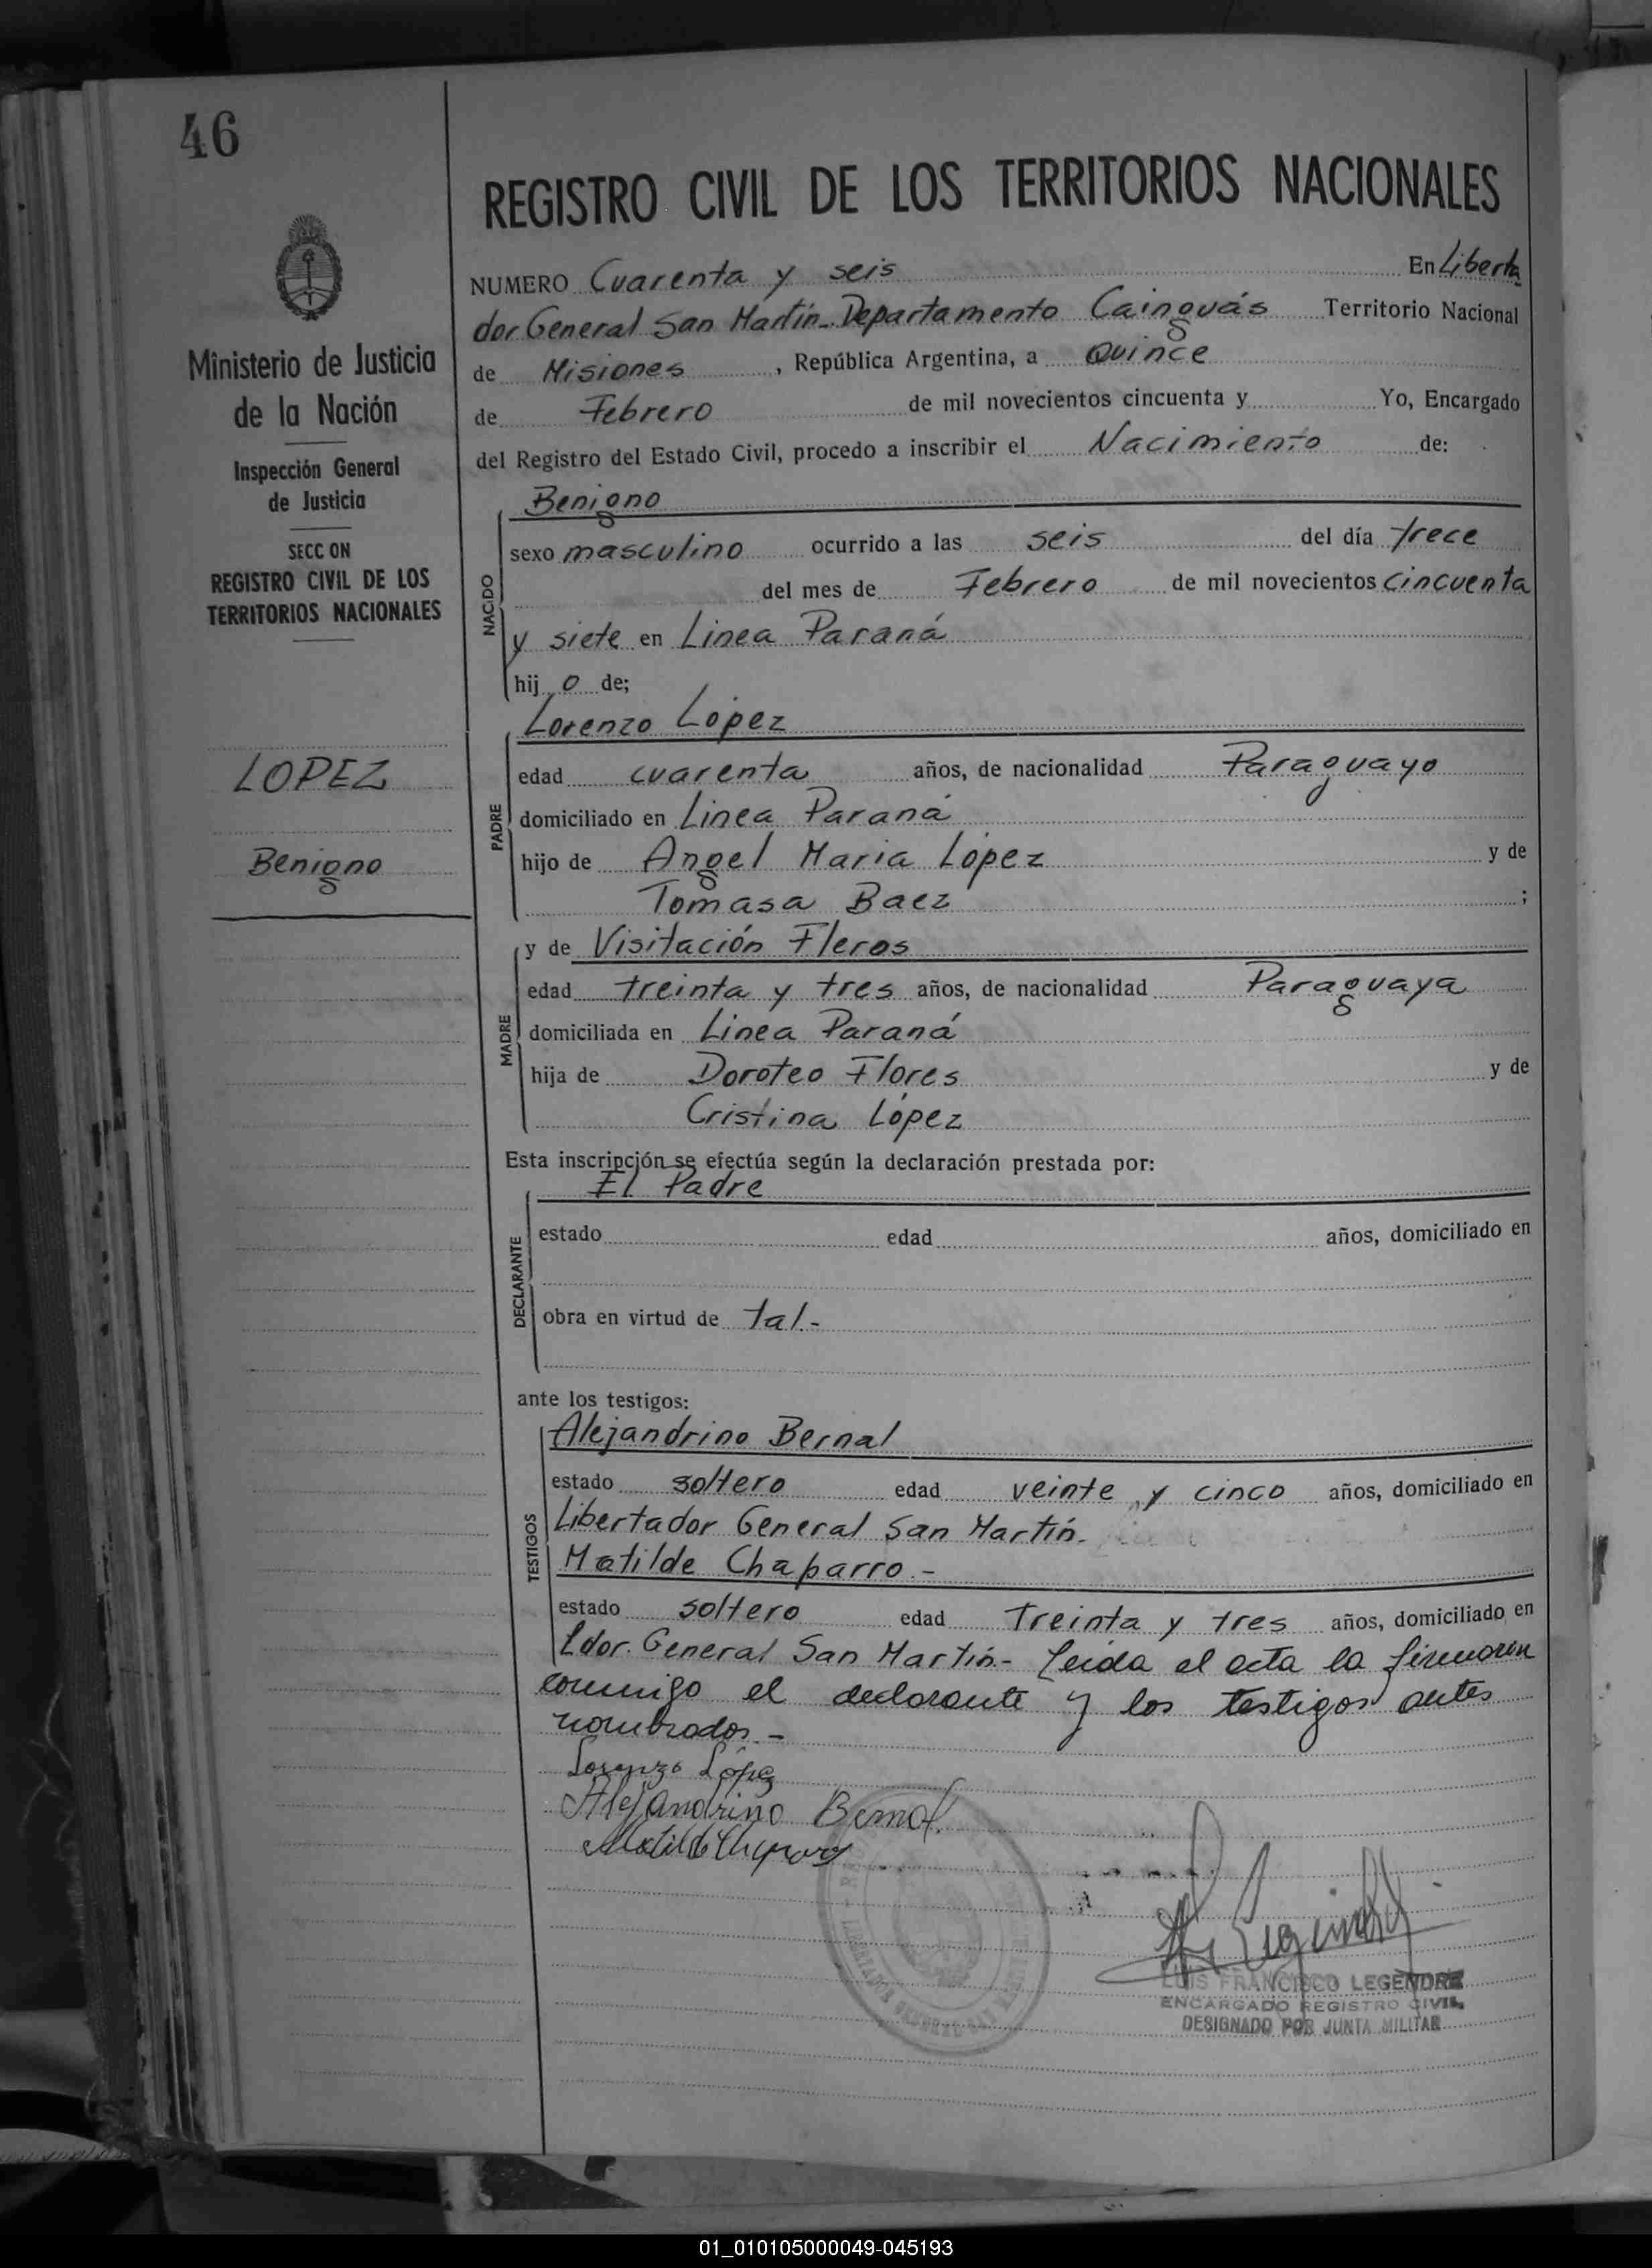 46
REGISTRO CIVIL DE LOS TERRITORIOS NACIONALES
NUMERO Cuarenta y seis En Liberta
dor General San Martín - Departamento Cainguás Territorio Nacional
de Misiones, República Argentina, a Quince
de Febrero de mil novecientos cincuenta y Yo, Encargado
del Registro del Estado Civil, procedo a inscribir el Nacimiento de:
Ministerio de Justicia
de la Nación
Inspección General
de Justicia
SECC ON
REGISTRO CIVIL DE LOS
TERRITORIOS NACIONALES
LOPEZ
Benigno
NACIDO
Benigno
sexo masculino ocurrido a las seis del día trece
del mes de Febrero de mil novecientos cincuenta
y siete en Linea Paraná
hij o de;
PADRE
Lorenzo López
edad cuarenta años, de nacionalidad Paraguayo
domiciliado en Linea Paraná
hijo de Angel Maria López y de
Tomasa Baez ;
MADRE
y de Visitación Fleros
edad treinta y tres años, de nacionalidad Paraguaya
domiciliada en Linea Paraná
hija de Doroteo Flores y de
Cristina López
Esta inscripción se efectúa según la declaración prestada por:
DECLARANTE
El Padre
estado edad años, domiciliado en
obra en virtud de tal.-
ante los testigos:
TESTIGOS
Alejandrino Bernal
estado soltero edad veinte y cinco años, domiciliado en
Libertador General San Martín.
Matilde Chaparro.-
estado soltero edad Treinta y tres años, domiciliado en
Ldor. General San Martín.- Leída el acta la firmaron
conmigo el declarante y los testigos antes
nombrados.-
Lorenzo López
Alejandrino Bernal.
Matilde Chaparro
LIBERTADOR GENERAL SAN
LUIS FRANCISCO LEGENDRE
ENCARGADO REGISTRO CIVIL
DESIGNADO POR JUNTA MILITAR
01_010105000049-045193